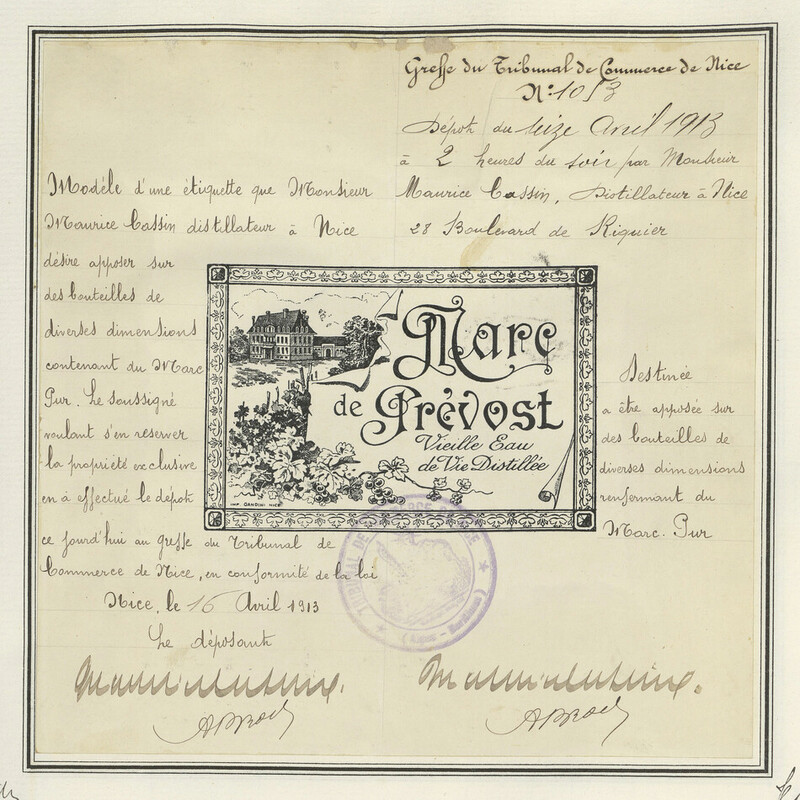 Greffe du Tribunal de Commerce de Nice
N: 1013
Dépôt du seize Avril 1913
à 2 heures du soir par Monsieur
Maurice Cassin, Distillateur à Nice
28 Boulevard de Riquier
Modèle d'une étiquette que Monsieur
Maurice Cassin distillateur à Nice
désire apposer sur
des bouteilles de
diverses dimensions
contenant du Marc
Pur. Le soussigné
voulant s'en réserver
la propriété exclusive
en a effectué le dépôt
ce jourd'hui au greffe du Tribunal de
Commerce de Nice, en conformité de la loi
Nice, le 16 Avril 1913
Le déposant
Marc
de Prévost
Vieille Eau
de Vie Distillée
IMP. GANDINI NICE
Destinée
a être apposée sur
des bouteilles de
diverses dimensions
renfermant du
Marc. Pur
TRIBUNAL DE
(Alpes-Maritimes)